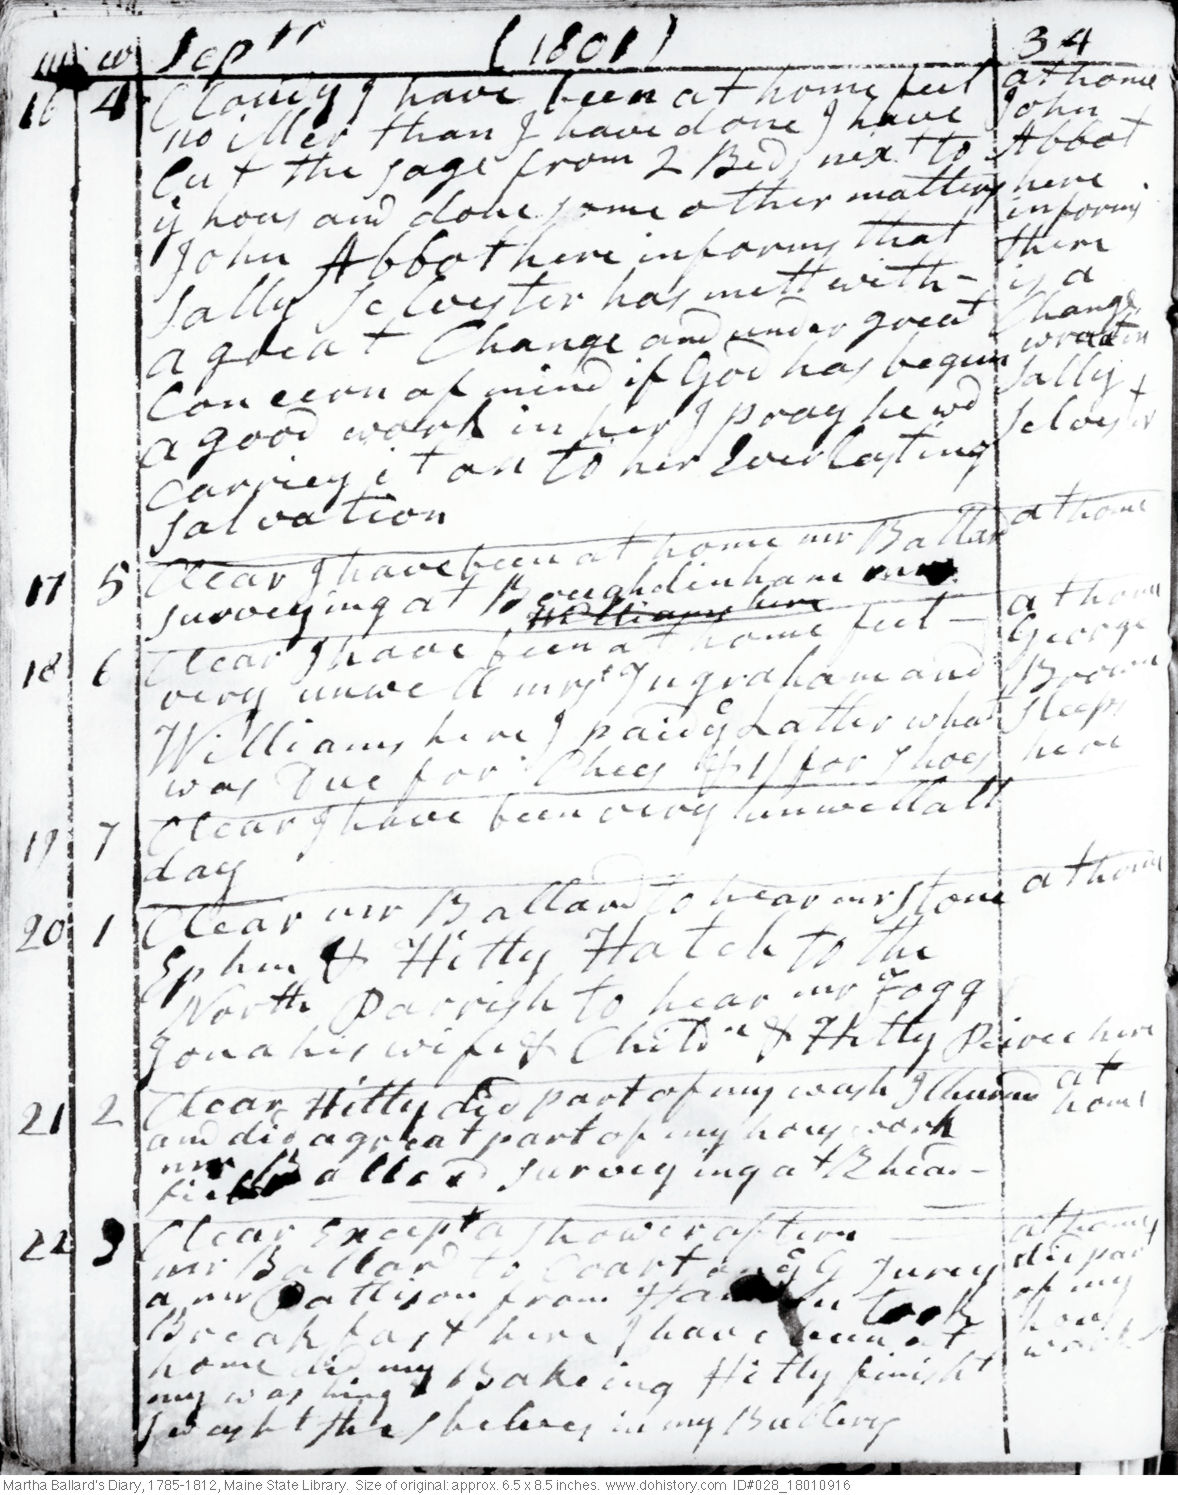 m w Sept^r (1801) 34
16 4 Cloudy I have been at home feel
no iller than I have done I have
Cut the sage from 2 Beds next to
ÿ hous and done some other matters
John Abbot here informs that
Sally Selvester has mett with-
a great Change and under great
Concern of mind if God has begun
a good work in her I pray he wd
carriey it on to her Everlasting
salvation
at home
John
Abbot
here
informs
there
is a
Change
wrot in
Sally
Selvester
17 5 Clear I have been at home mr Ballard
surveying at Boughdinham
Williams here
at home
18 6 Clear I have been at home feel -
very unwell mrss Ingraham and
Williams here I paid ÿ Latter what
was Due for Chees & 1/ for shoes
at home
George
Brown
sleeps
here
19 7 Clear I have been very unwell all
day
20 1 Clear mr Ballard to hear mr Stone
Ephm & Hitty Hatch to the
North Parrish to hear mr Fogg
Jona his wife & Childn & Hitty Peirce here
at home
21 2 Clear Hitty did part of my wash I Churnd
and did a great part of my hous work
mr Ballard surveying at Bhea-
field
at
home
22 3 Clear Except a shower aftern
mr Ballard to Coart on ÿ G Jurey
a mr Pattison from took
Breakfast here I have been at
home did my Bakeing Hitty finisht
my washing
I washt the shelves in my Butlery
at home
did part
of my
hous
work